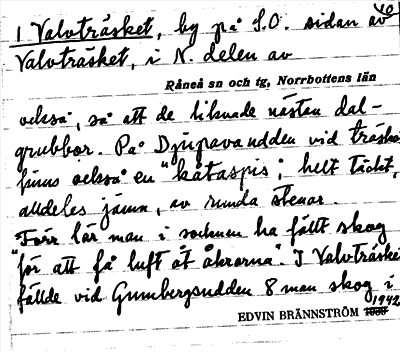 10
1 Valvträsket, by på S.O. sidan av
Valvträsket, i N. delen av
Råneå sn och tg, Norrbottens län
också, så att de liknade nästan dal-
grubbor. På Djupavandden vid träske
finns också en "kåtaspis", helt täckt,
alldeles jämn, av runda stenar.
"Förr lär man i socknen ha fällt skog
"för att få luft åt åkrarna". I Valvträske
fällde vid Gumbergsudden 8 man skog i
1942
EDVIN BRÄNNSTRÖM 1930